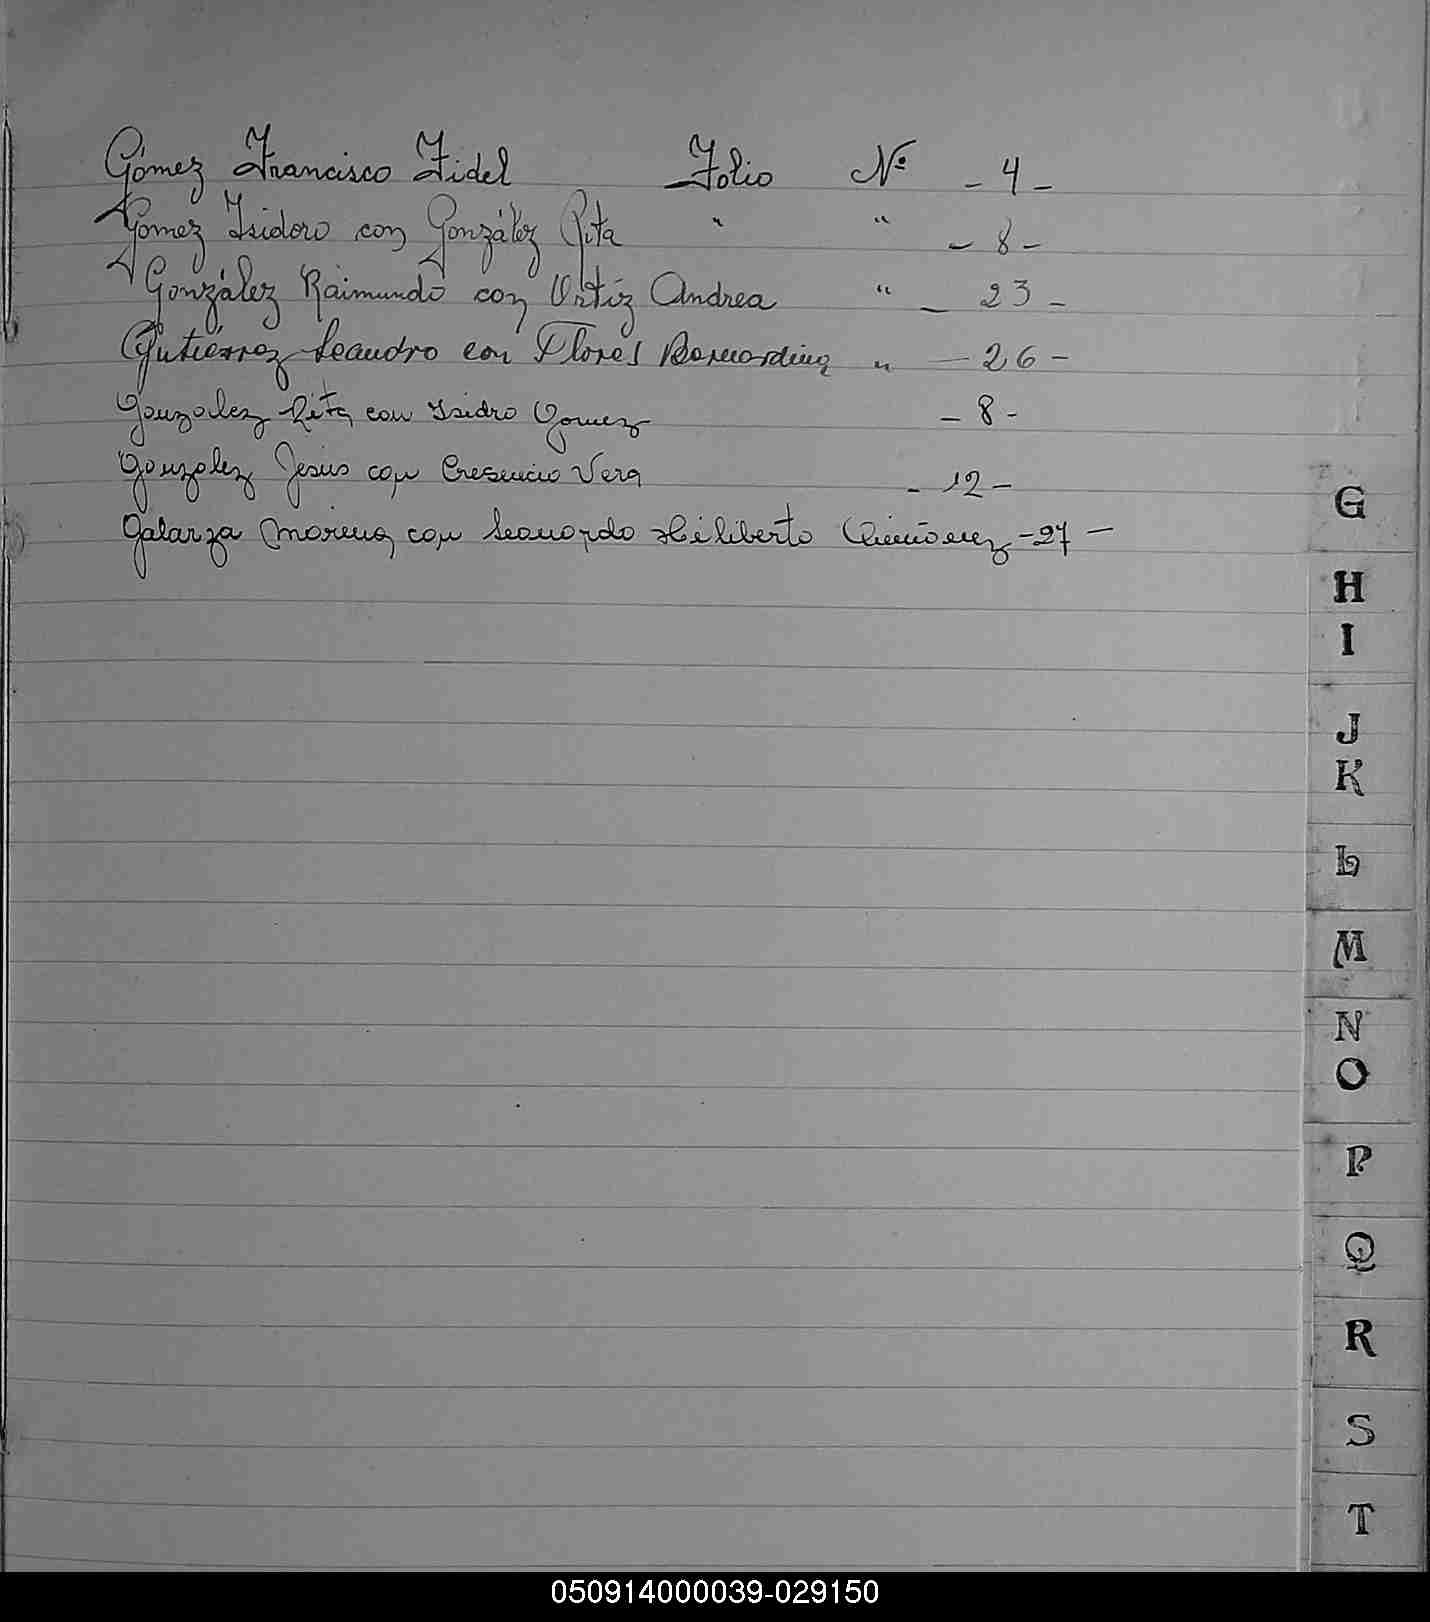 Gómez Francisco Fidel Folio Nº - 4 -
Gómez Isidoro con González Rita " " - 8 -
González Raimundo con Ortíz Andrea " - 23 -
Gutiérrez Leandro con Flores Bernardina " - 26 -
Gonzalez Rita con Isidro Gomez - 8 -
Gonzalez Jesús con Cresencio Vera - 12 -
Galarza Morena con Leonardo Heliberto - 27 -
G
H
I
J
K
L
M
N
O
P
Q
R
S
T
050914000039-029150